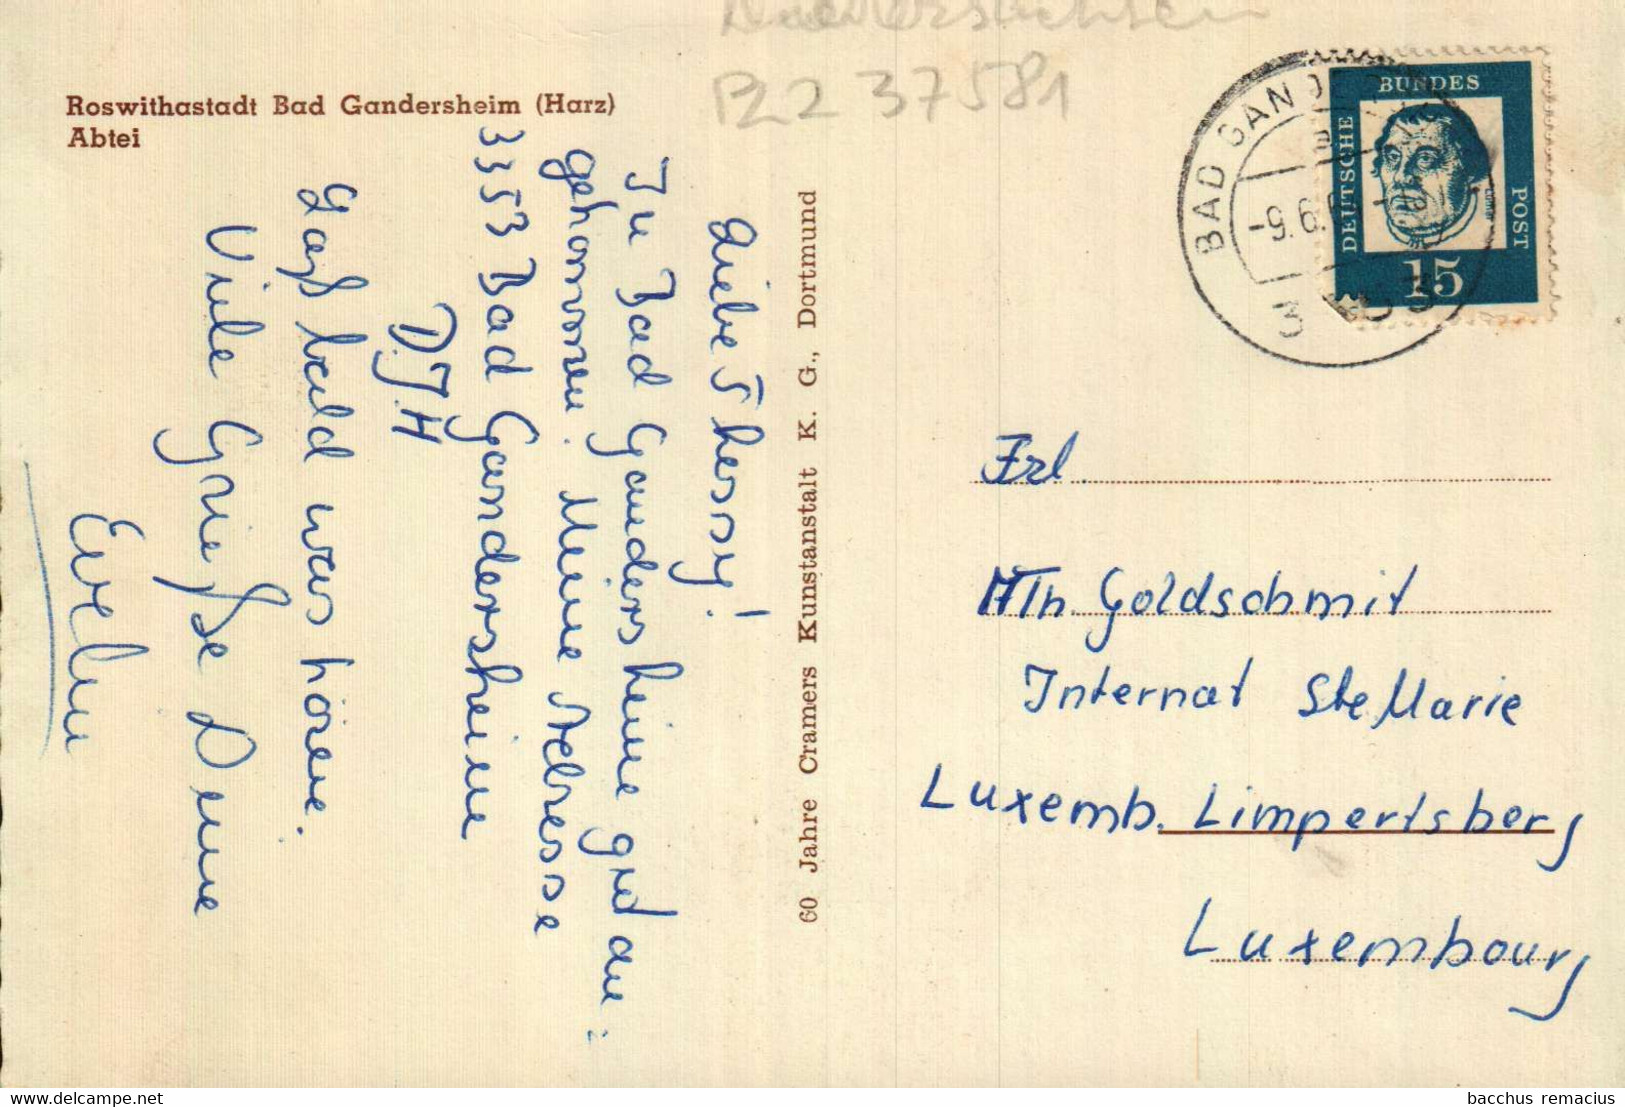 Niedersachsen
PLZ 37581
Roswithastadt Bad Gandersheim (Harz)
Abtei
Liebe Thessy!
In Bad Gandersheim gut an=
gekommen. Meine Adresse
3353 Bad Gandersheim
D.J.H
Laß bald was hören.
Viele Grüße Deine
Evelin
60 Jahre Cramers Kunstanstalt K. G., Dortmund
BAD GAN
-9.6.
3353
DEUTSCHE
BUNDES
POST
15
Frl
Goldschmit
Internat Ste Marie
Luxemb. Limpertsberg
Luxembourg
bacchus remacius
delcampe.net